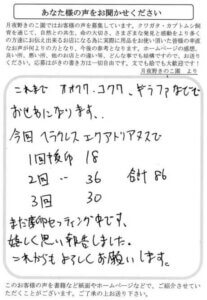 あなた様の声をお聞かせください
月夜野きのこ園ではお客様の声を募集しています。クワガタ・カブトムシ飼
育を通じて、自然との共生、命の大切さ、さまざまな発見と感動をより多く
の方達にお伝え出来るお店になる為に実際に用品をお使い頂いた皆様の率直
なお声が何よりの力となり、今後の参考となります。ホームページの感想、
良い所、悪い所、他のお店との違い等、どんな事でも結構ですので、お送り
ください。応募はがきの書き方は一切自由です。文でも絵でも大歓迎です!
月夜野きのこ園 より
これまで オオクワ、コクワ、ギラファなどで
おせわになります。
今回 ヘラクレス エクアトリアヌスで
1回採卵 18
2回 〃 36 合計 86
3回 30
また産卵セッティング中です。
嬉しく思い報告しました。
これからもよろしくお願いします。
このお客様の声を書籍など紙面やホームページなどで、ご紹介させてい
ただくことがございます。ご了承の上お送り下さい。